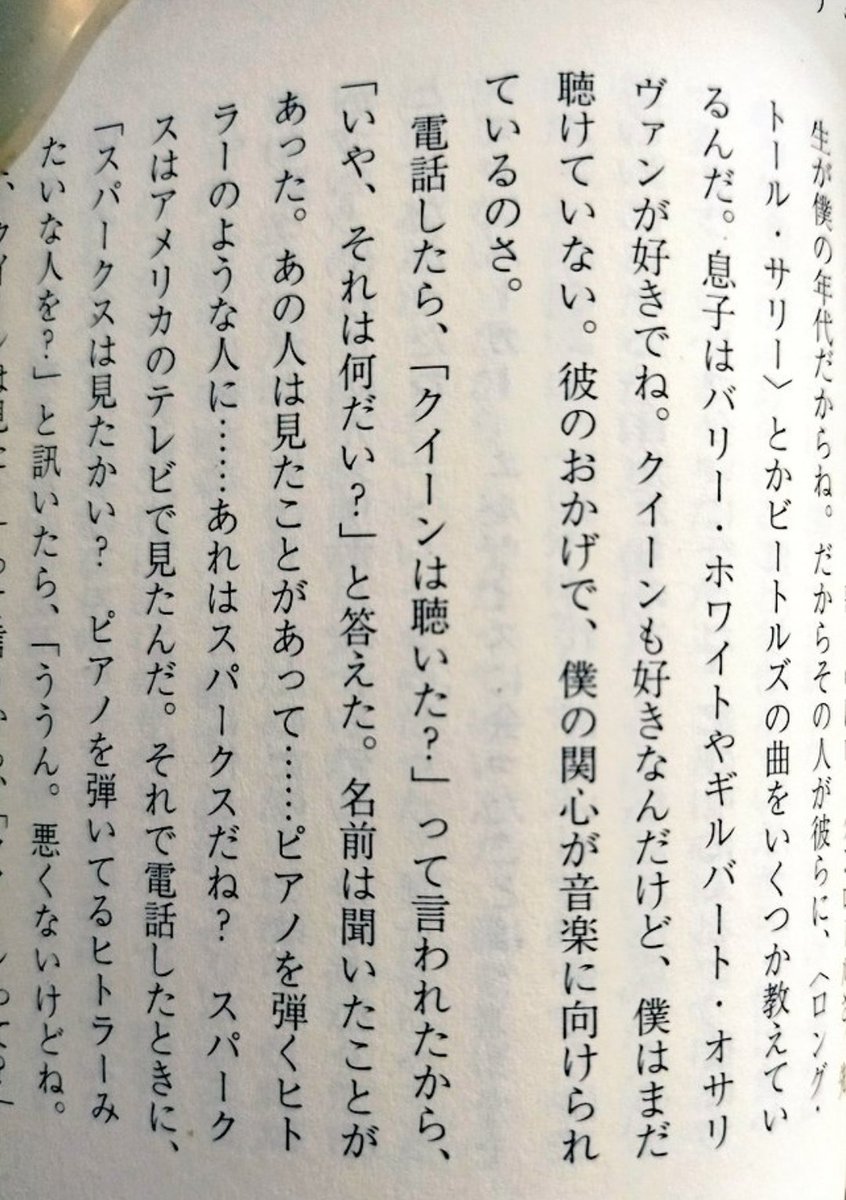 生が僕の年代だからね。だからその人が彼らに、〈ロング・
トール・サリー〉とかビートルズの曲をいくつか教えてい
るんだ。息子はバリー・ホワイトやギルバート・オサリ
ヴァンが好きでね。クイーンも好きなんだけど、僕はまだ
聴けていない。彼のおかげで、僕の関心が音楽に向けられ
ているのさ。
電話したら、「クイーンは聴いた？」って言われたから、
「いや、それは何だい？」と答えた。名前は聞いたことが
あった。あの人は見たことがあって……ピアノを弾くヒト
ラーのような人に……あれはスパークスだね？　スパーク
スはアメリカのテレビで見たんだ。それで電話したときに、
「スパークスは見たかい？　ピアノを弾いてるヒトラーみ
たいな人を？」と訊いたら、「ううん。悪くないけどね。